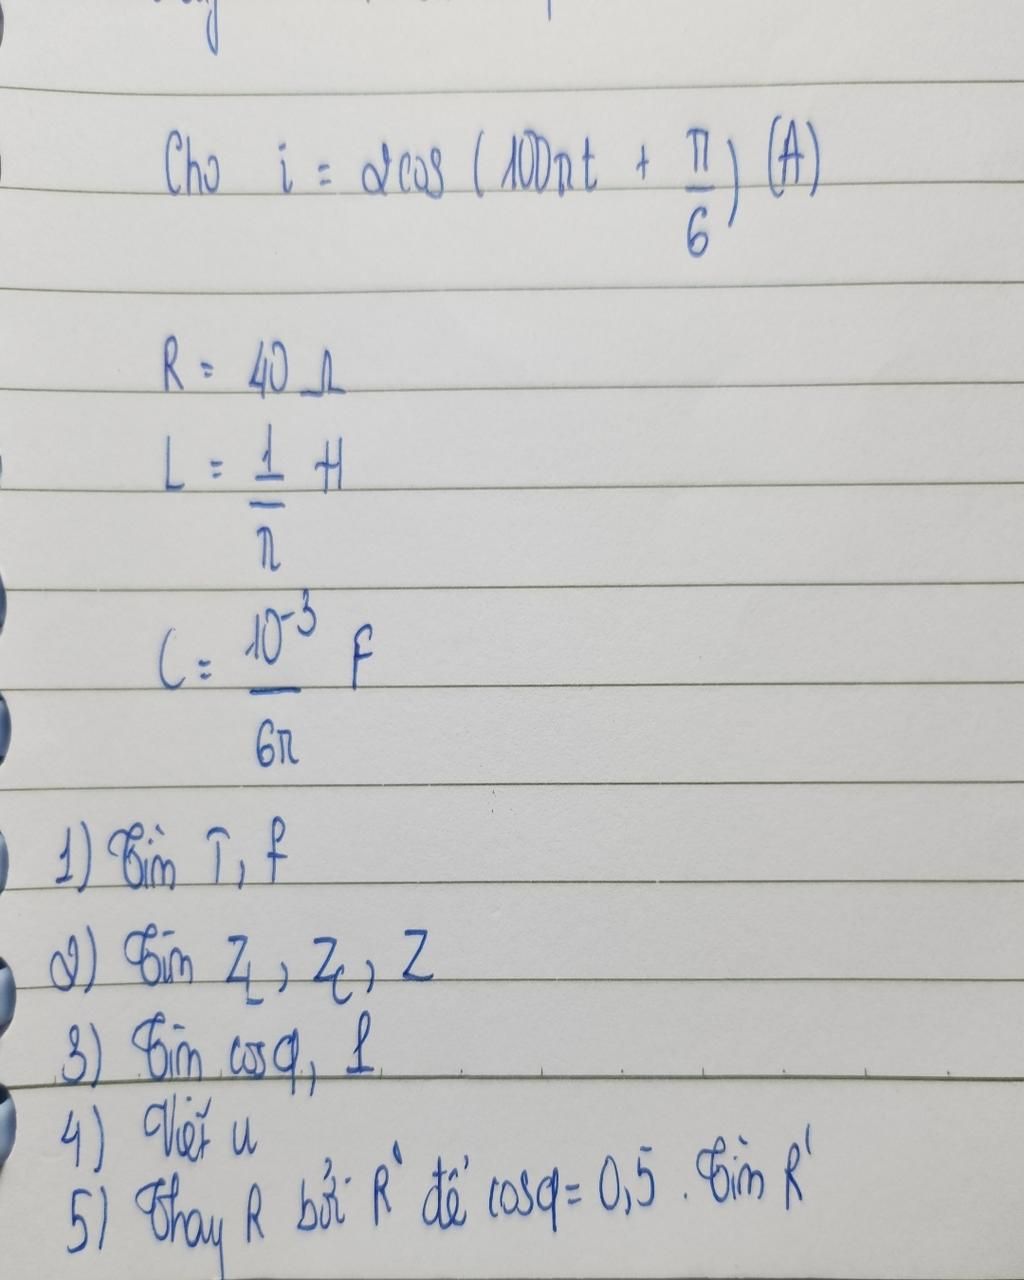 Cho i = 2cos (100πt + π/6) (A)
R = 40 Ω
L = 1/π H
C = 10⁻³/6π F
1) Tìm T, f
2) Tìm Z_L, Z_C, Z
3) Tìm cosφ, P
4) Viết u
5) Thay R bởi R' để cosφ = 0,5. Tìm R'